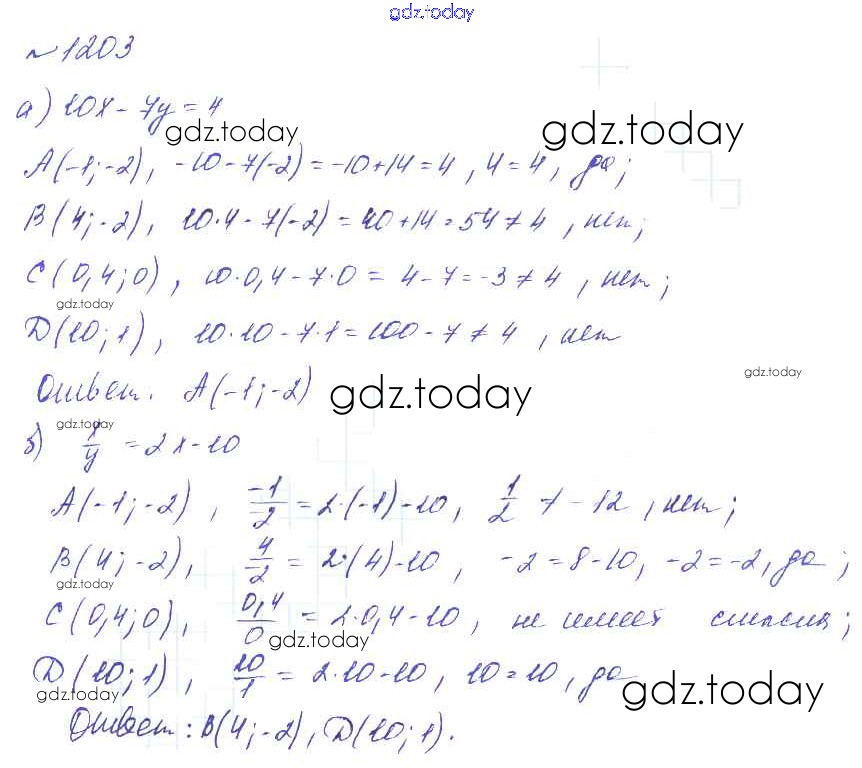 gdz.today
№1203
а) 10x - 7y = 4
gdz.today gdz.today
A(-1;-2), -10-7(-2)=-10+14=4, 4=4, да;
B(4;-2), 10·4-7(-2)=40+14=54≠4, нет;
C(0,4;0), 10·0,4-7·0= 4-7=-3≠4, нет;
gdz.today
D(10;1), 10·10-7·1=100-7≠4, нет
gdz.today
Ответ: A(-1;-2) gdz.today
gdz.today
б) x/y = 2x-10
A(-1;-2), -1/-2 = 2·(-1)-10, 1/2 ≠ -12, нет;
B(4;-2), 4/2 = 2·(4)-10, -2=8-10, -2=-2, да;
gdz.today
C(0,4;0), 0,4/0 = 2·0,4-10, не имеет смысла;
gdz.today
D(10;1), 10/1 = 2·10-10, 10=10, да
gdz.today gdz.today
Ответ: B(4;-2), D(10;1).